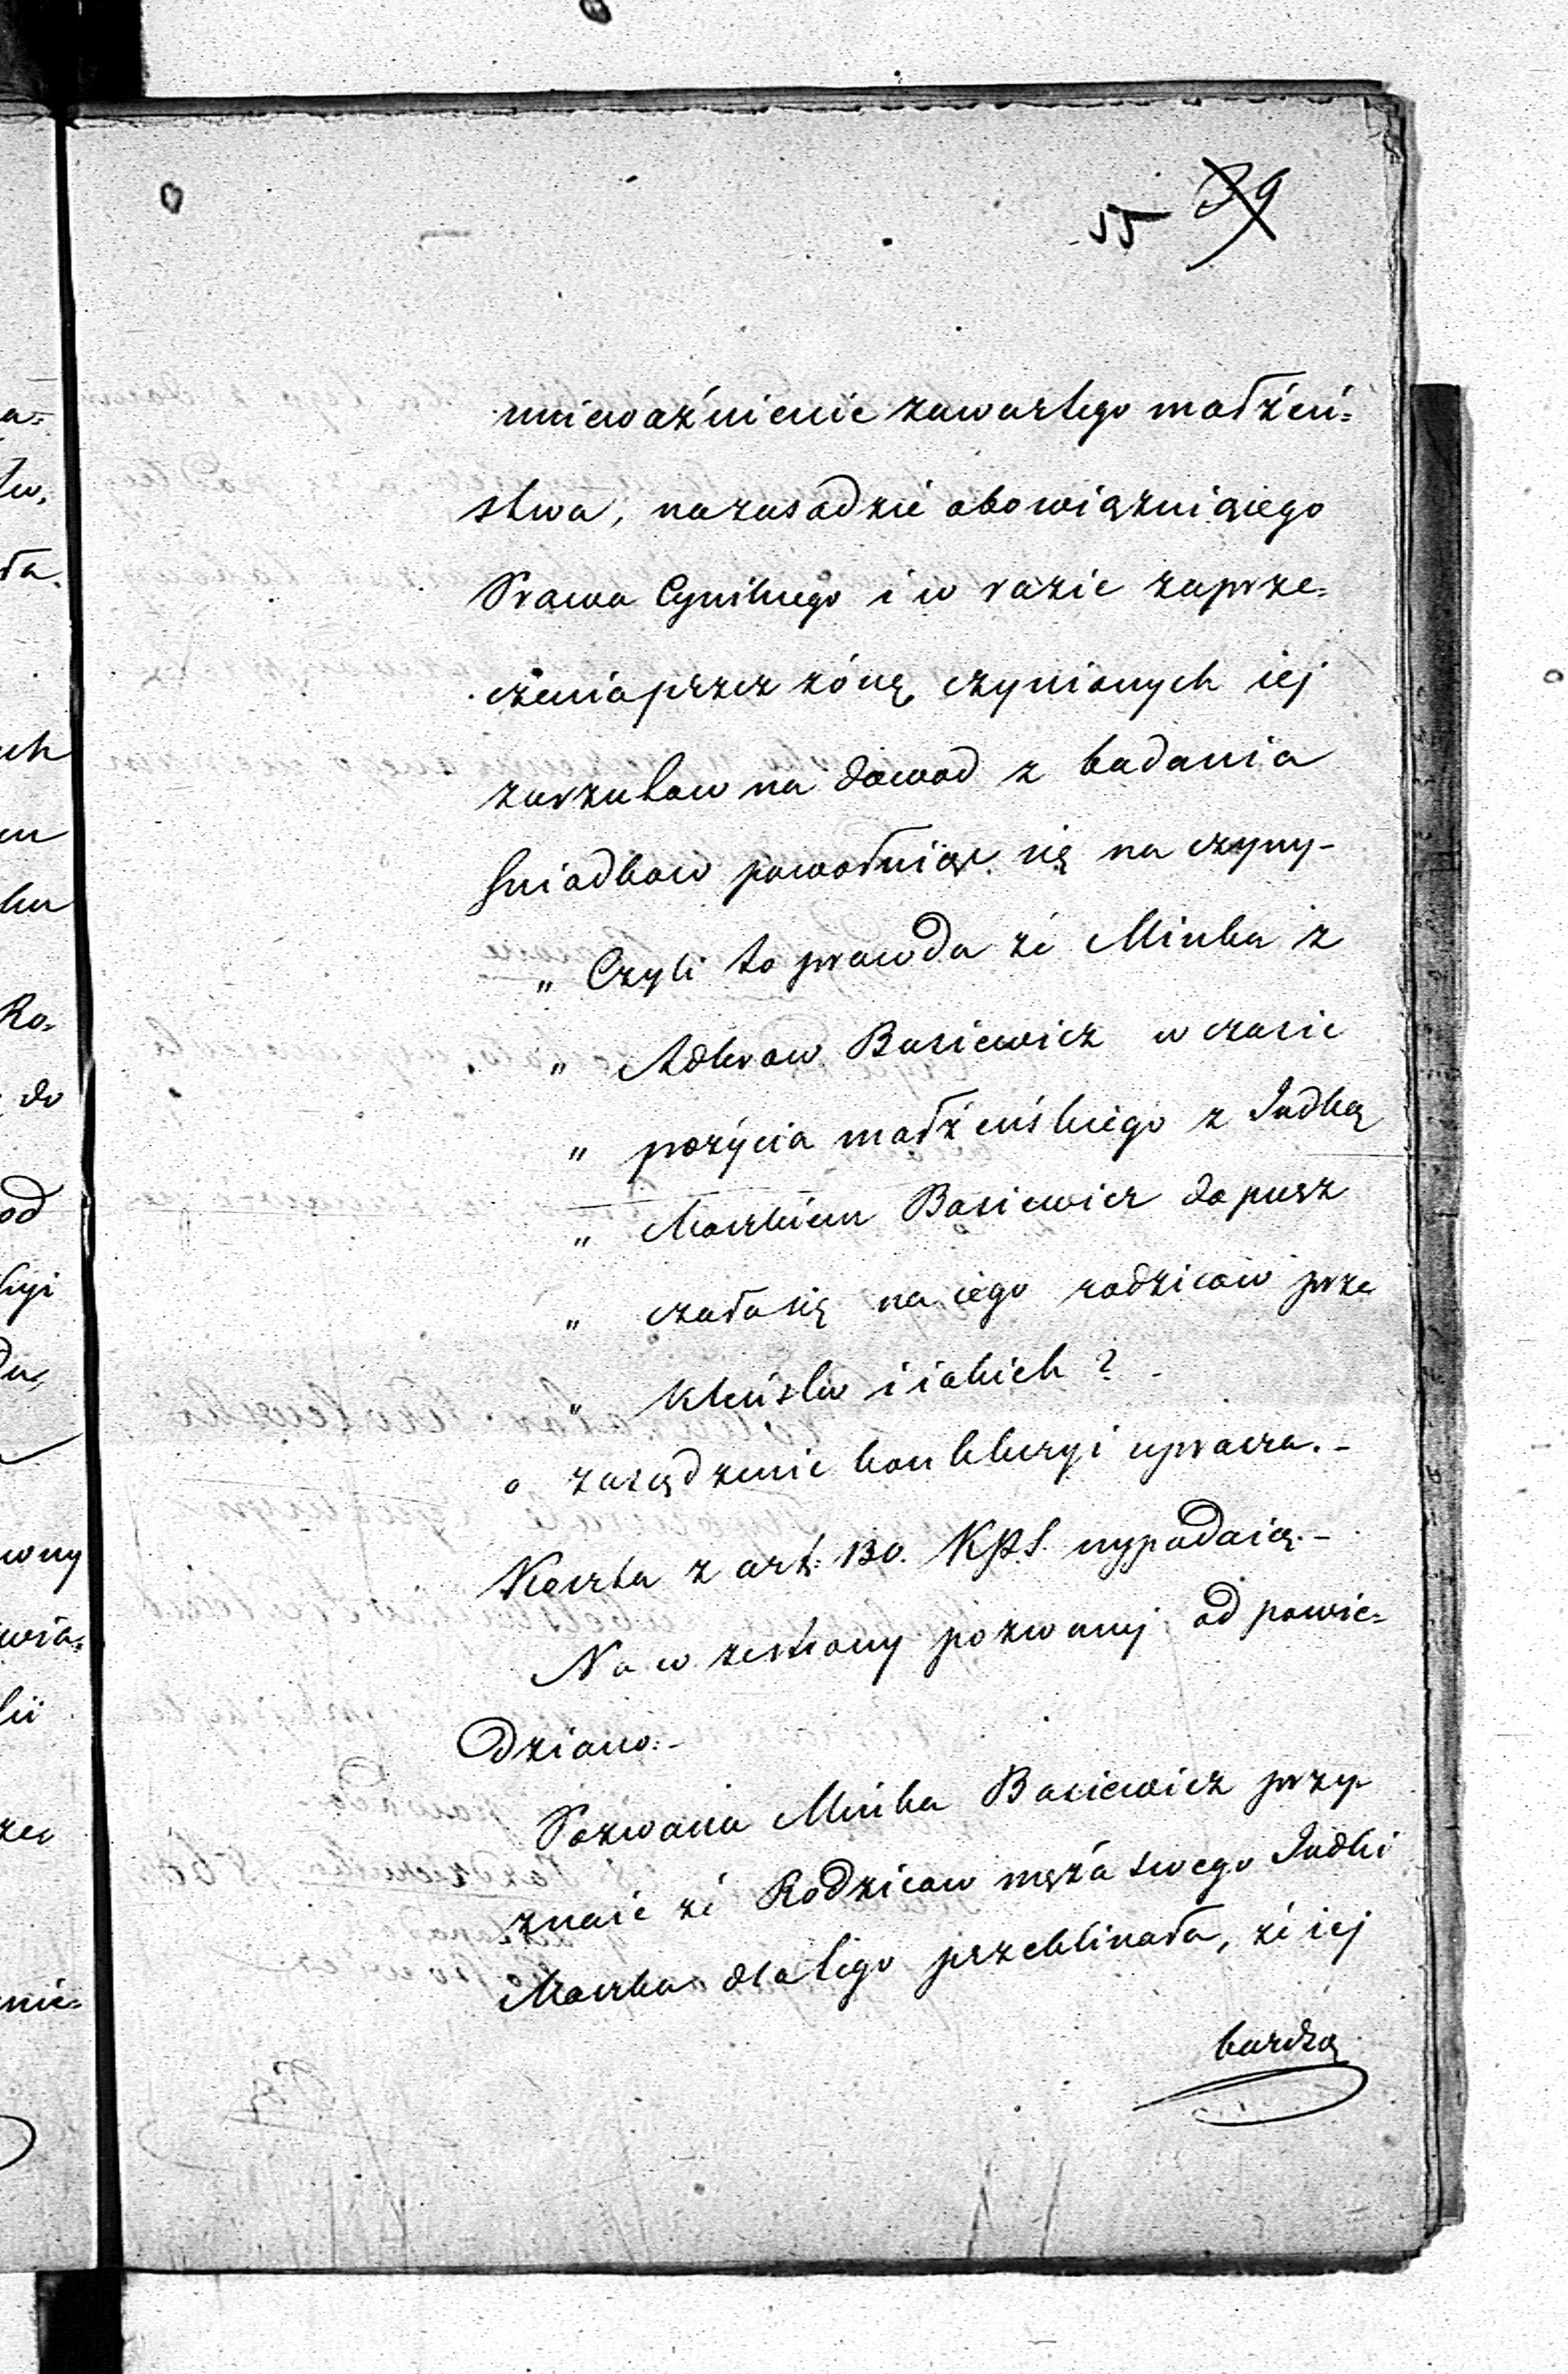 55 39
unieważnienie zawartego małżeń=
stwa, na zasadzie obowiązuiącego
Prawa Cywilnego i w razie zaprze=
czenia przez żónę czynionych iej
zarzutow na dowod z badania
świadkow powołuiąc się na czyny-
„ Czyli to prawda że Minka z
„ Adlerow Basiewicz w czasie
„ pożycia małżeńskiego z Judką
„ Moszkiem Basiewicz dopusz
„ czała się na iego rodzicow prze
„ kleństw i iakich ? -
o zarządzenie konkluzyi uprasza. -
Koszta z art. 130. KPS wypadaią. -
Na w ze strony pozwanej odpowie=
dziano: -
Pozwana Minka Basiewicz przy-
znaie że Rodzicow męża swego Judki
Moszka dla tego przeklinała, że iej
bardzo